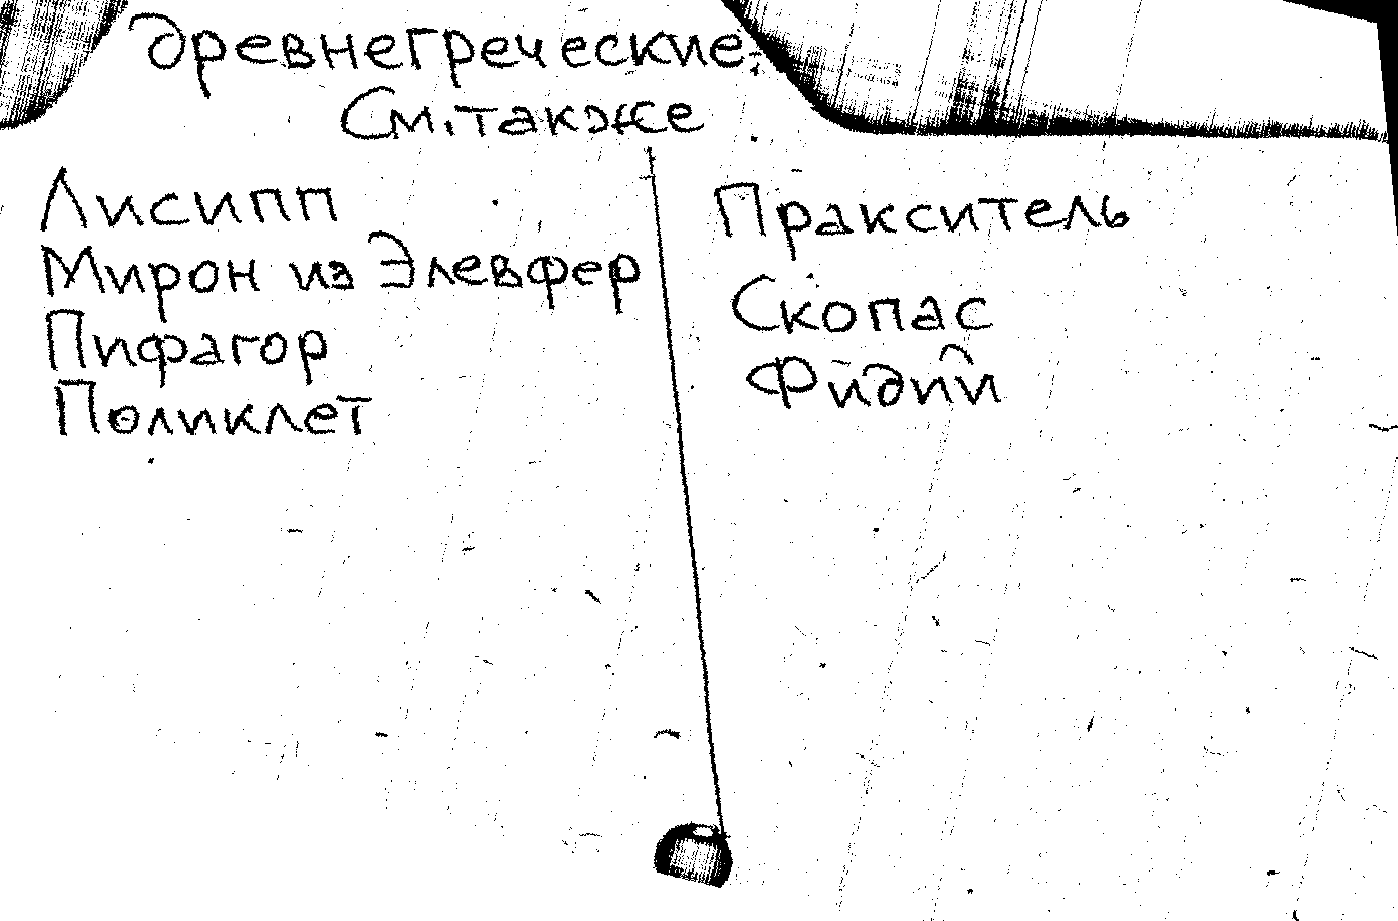 древнегреческие.
См. также
Лисипп
Мирон из Элевфер
Пифагор
Поликлет
Пракситель
Скопас
Фидий